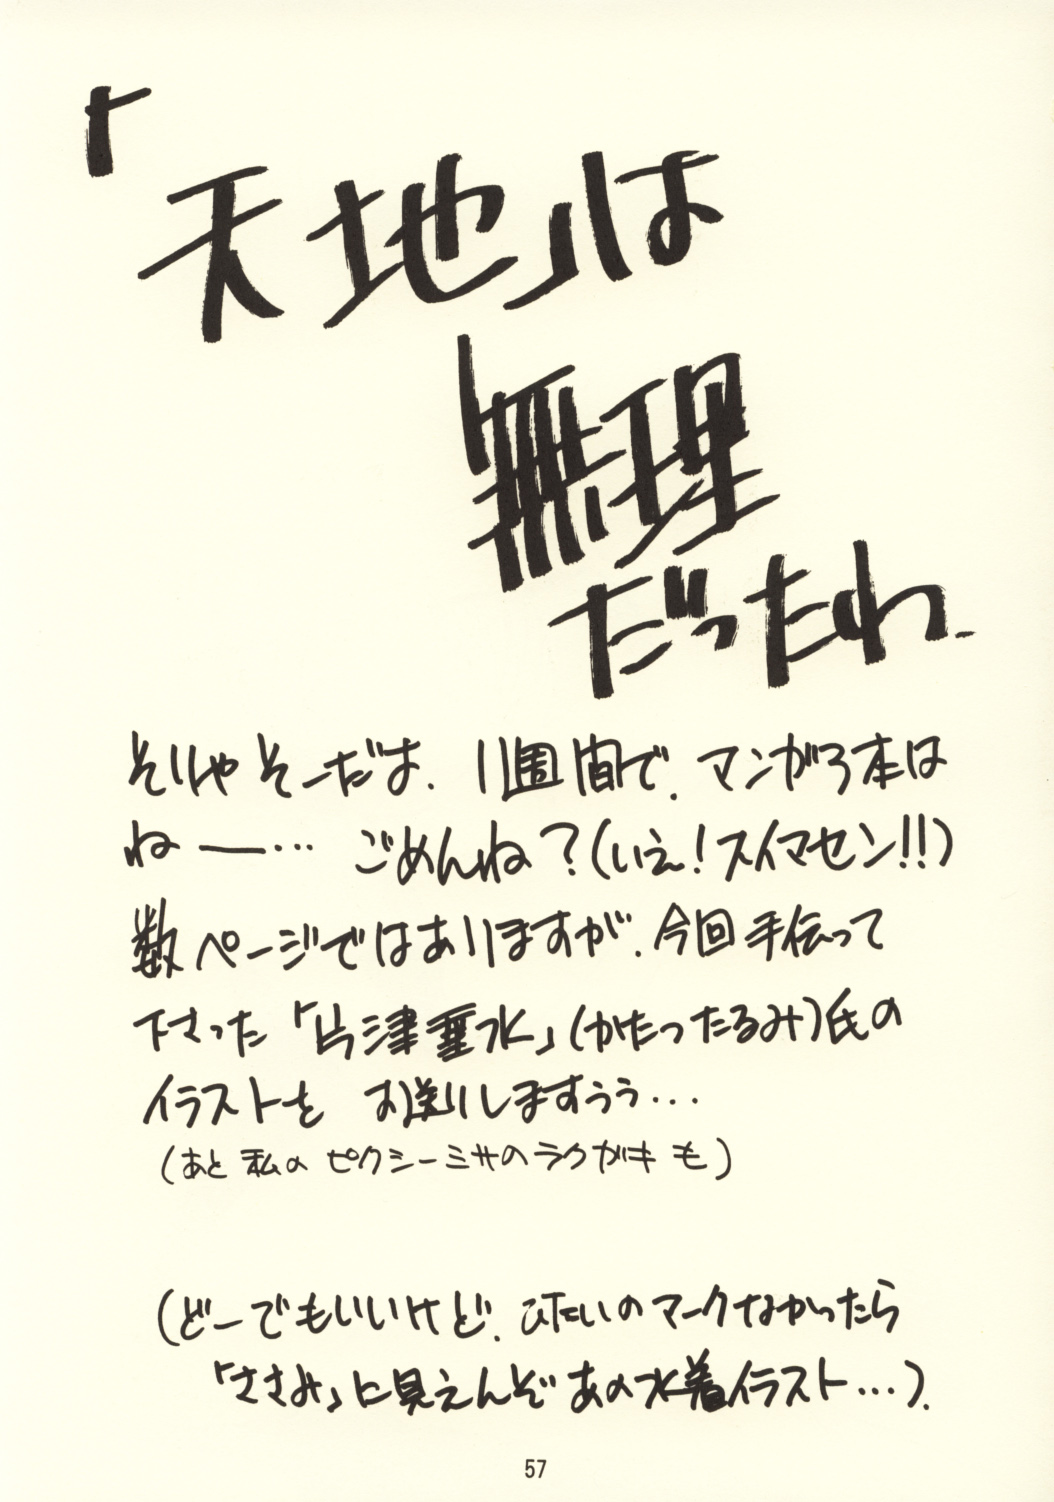 「天地」は
無理
だったわ
そりゃそーだよ、1週間で、マンガ3本は
ねー… ごめんね?(いえ!スイマセン!!)
数ページではありますが、今回手伝って
下さった「片津垂水」(かたったるみ)氏の
イラストを お送りしますぅぅ…
(あと私の ピクシーミサのラクガキも)
(どーでもいいけど、ひたいのマークなかったら
「ささみ」に見えんぞあの水着イラスト…).
57